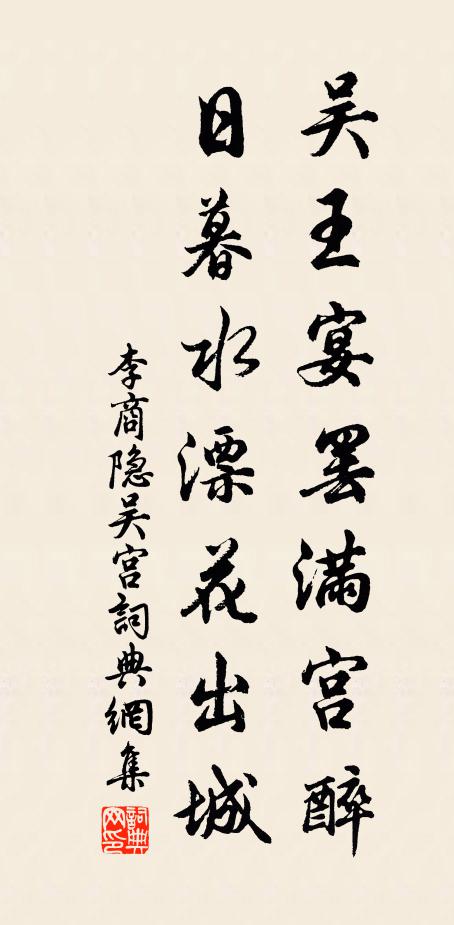 吴王宴罢满宫醉
日暮水漂花出城
李商隐吴宫詞典網集
詞典网印